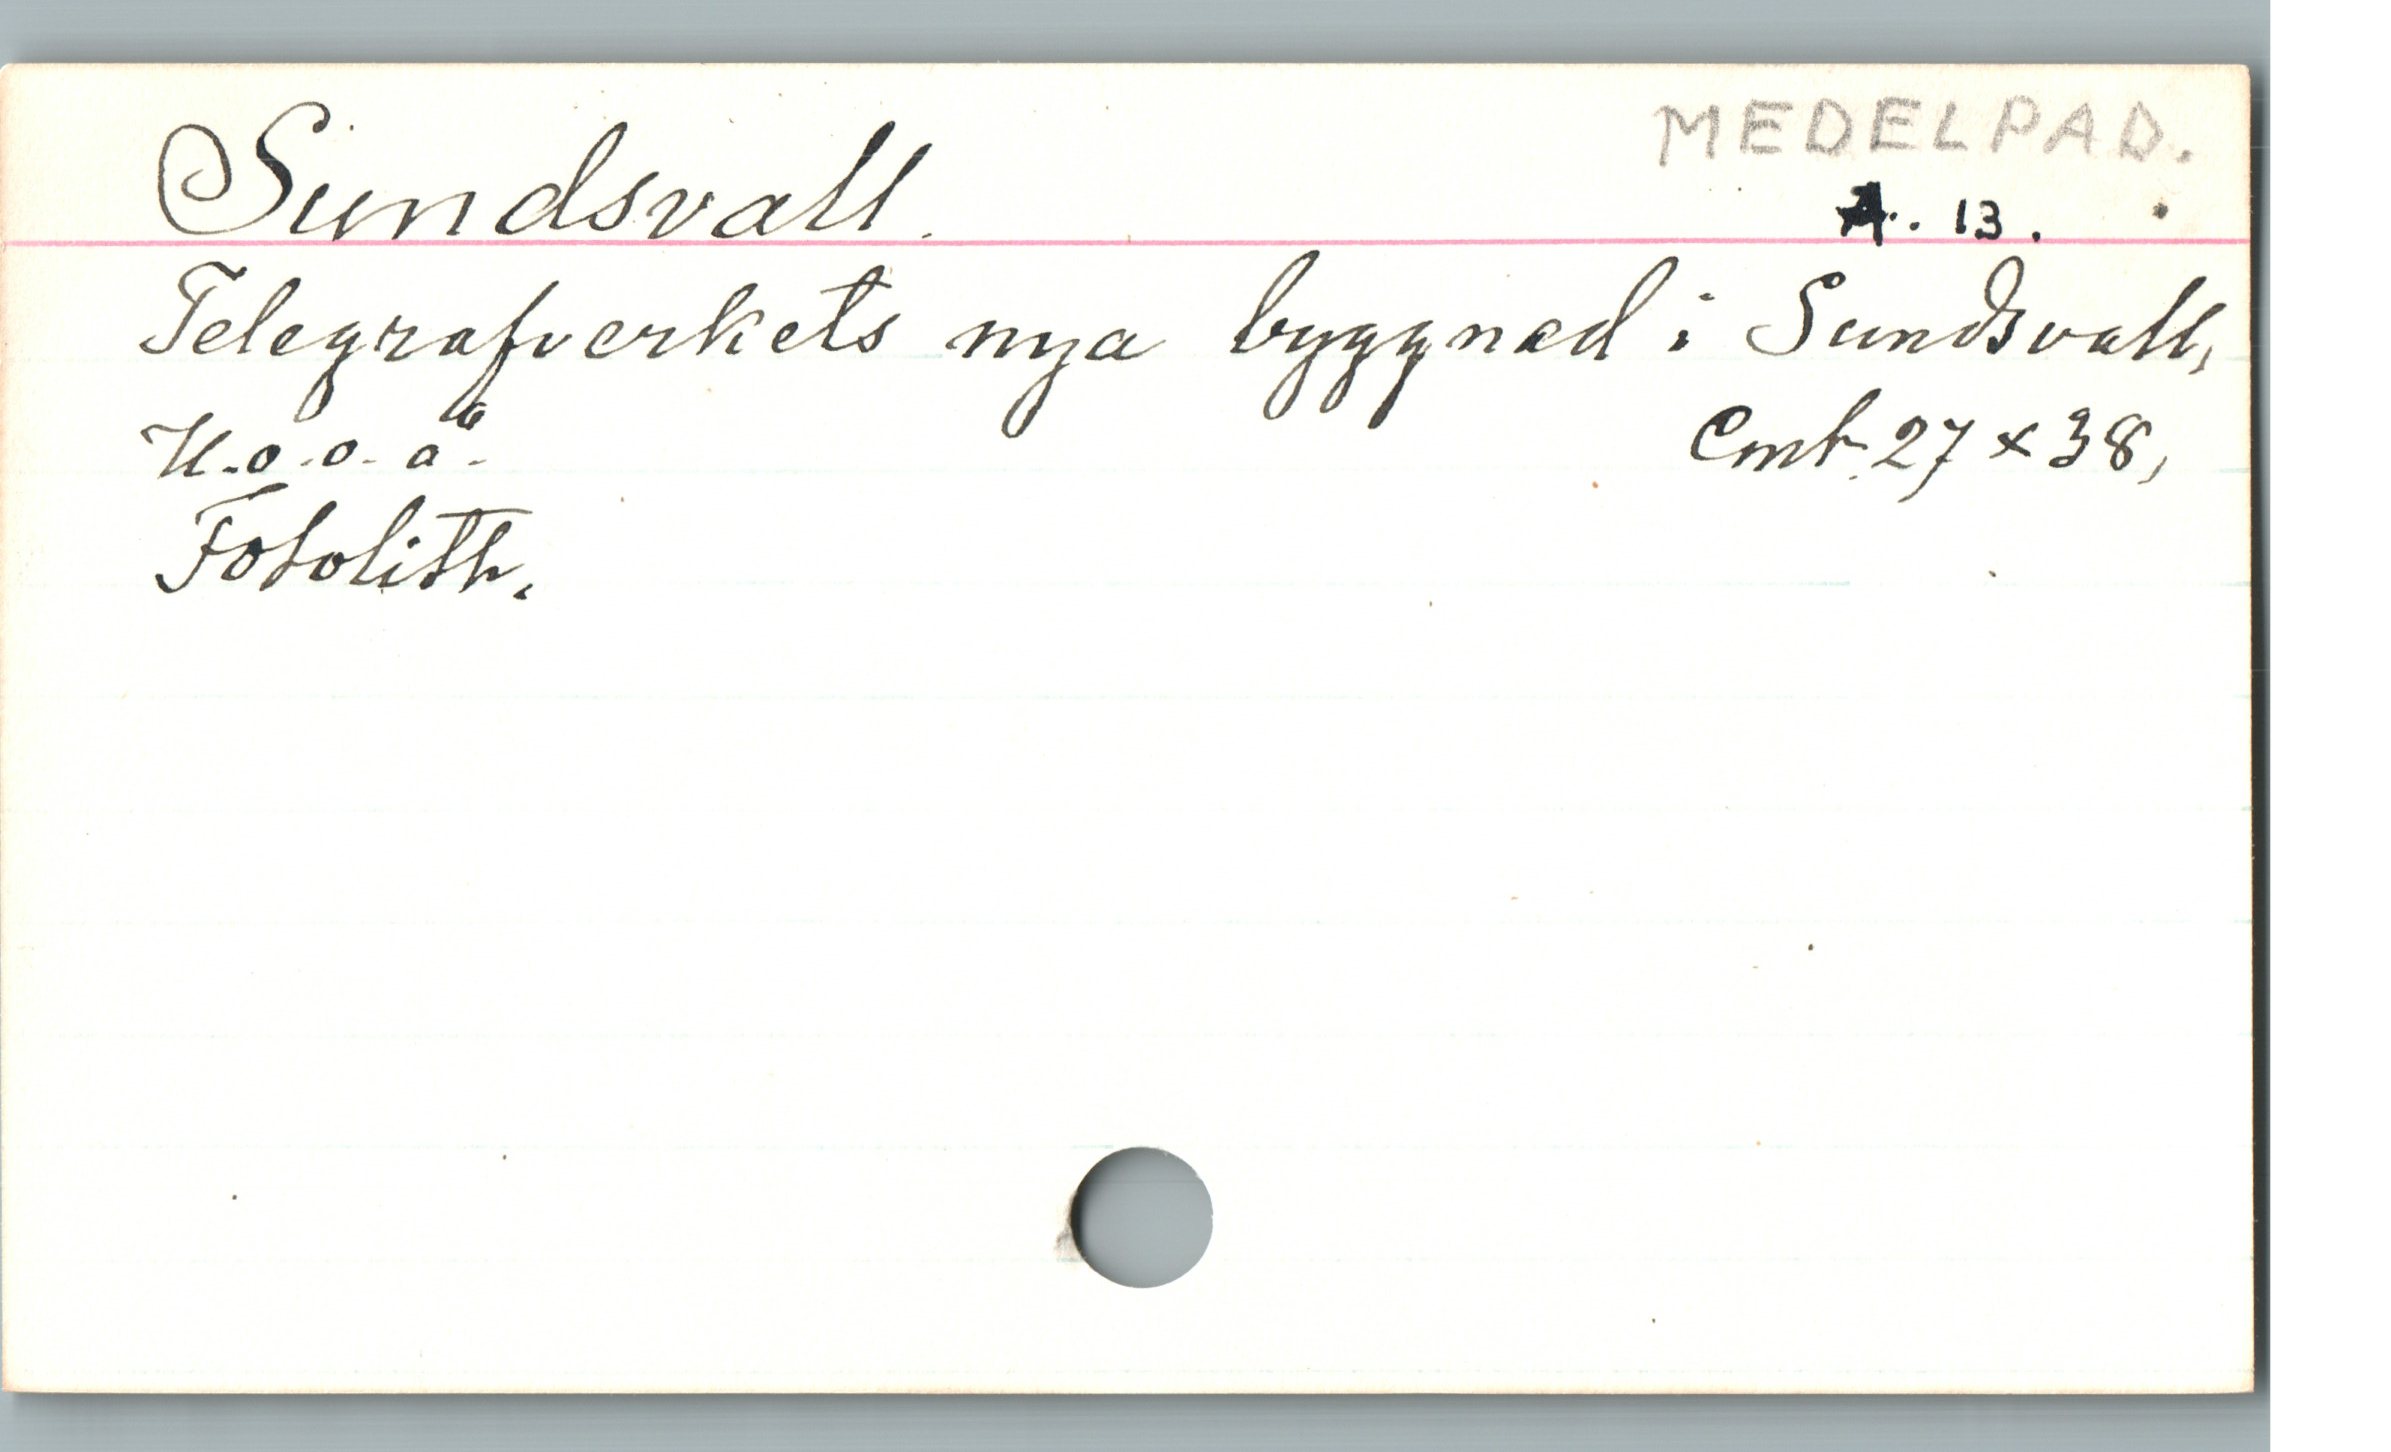 MEDELPAD.
Sundsvall. A. 13.
Telegrafverkets nya byggnad i Sundsvall,
U. o. o. å. Cmt. 27 x 38,
Fotolith.